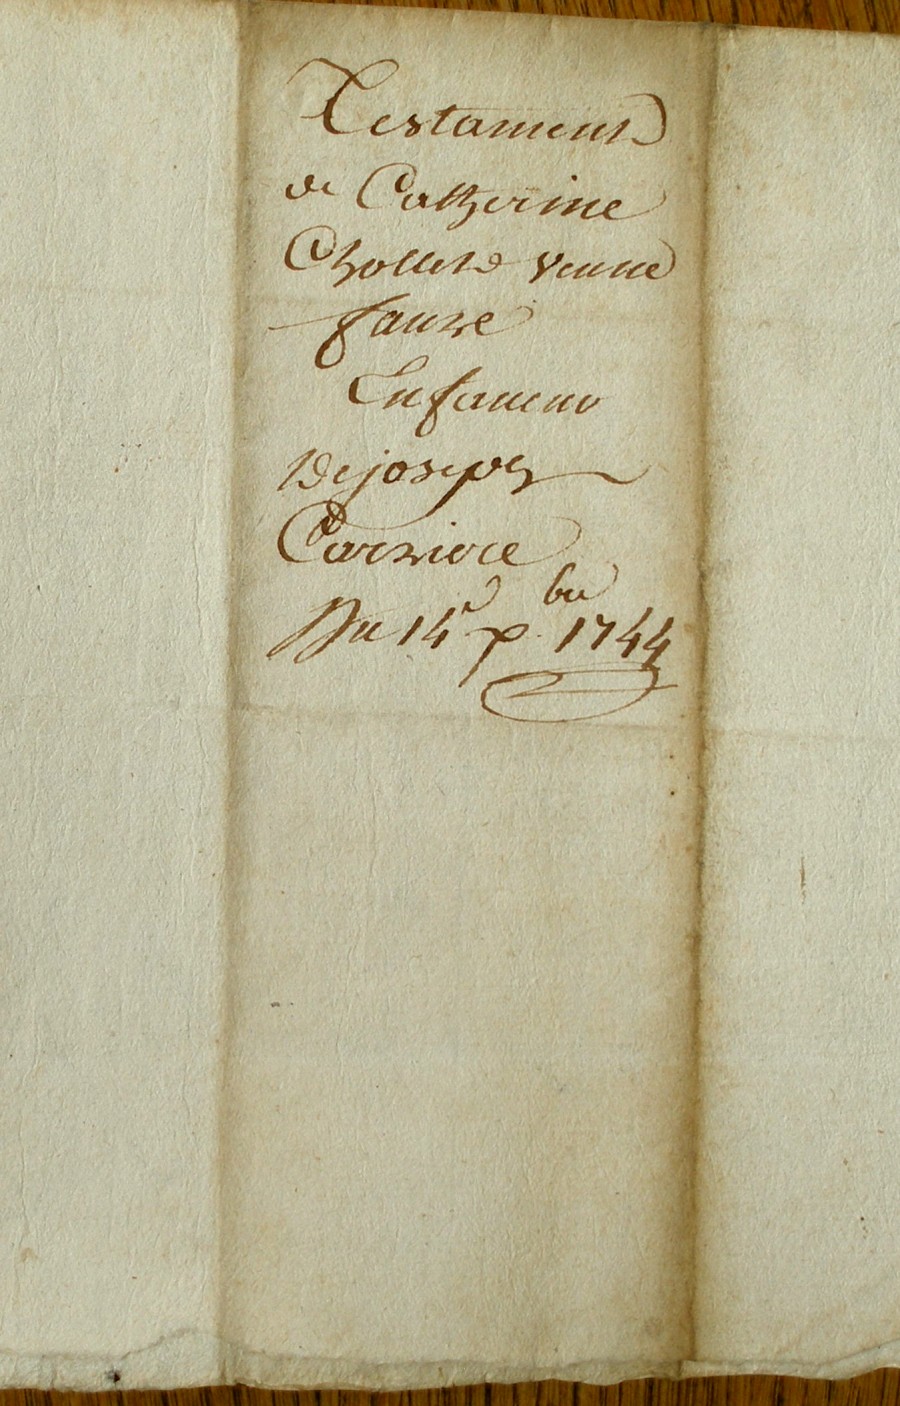 Testament
de Catherine
Chollet veuve
faure
En faveur
de joseph
Carriere
Du 14e 1744